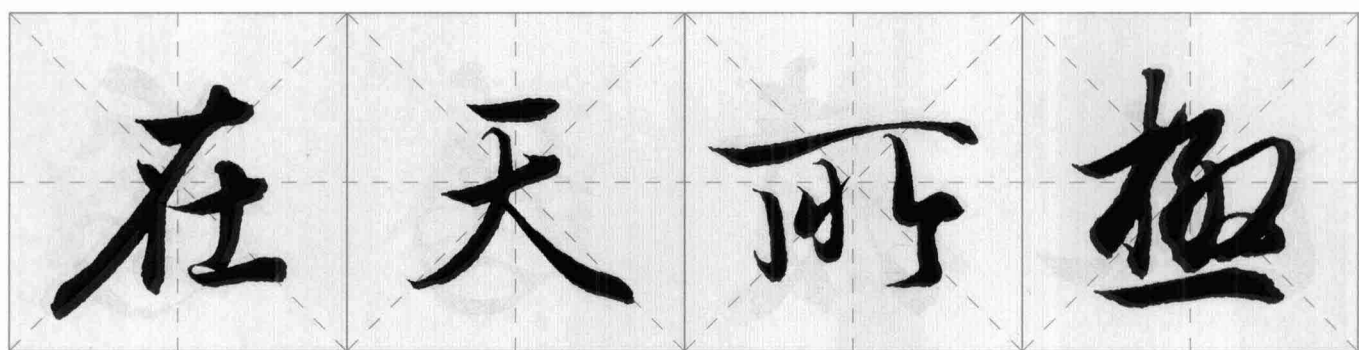 在天所極